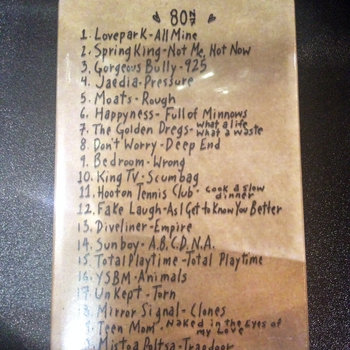 80N7
1. Lovepark-All Mine
2. Spring King-Not Me, Not Now
3. Gorgeous Bully-925
4. Jaedia-Pressure
5. Moats-Rough
6. Happyness-Full of Minnows
7. The Golden Dregs-What a life what a waste
8. Don't Worry-Deep End
9. Bedroom-Wrong
10. King TV-Scumbag
11. Hooton Tennis Club-Cook a slow dinner
12. Fake Laugh-As I Get to Know You Better
13. Diveliner-Empire
14. Sunboy-A.B.C.D.N.A.
15. Total Playtime-Total Playtime
16. YSBM-Animals
17. Unkept-Torn
18. Mirror Signal-Clones
Teen Mom-Naked in the Eyes of my Love
Mistoa Poltsa-Trapdoor